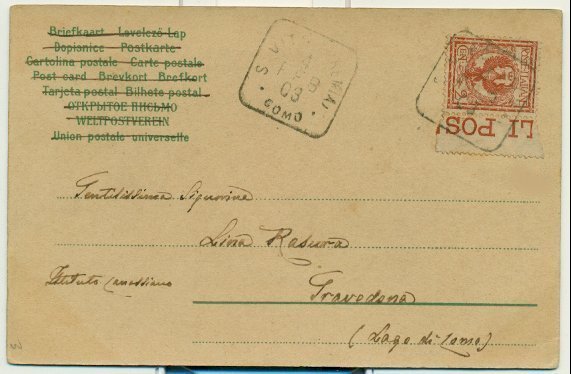 Briefkaart Levelező-Lap
Dopisnice Postkarte
Cartolina postale Carte postale
Post card Brevkort Brefkort
Tarjeta postal Bilhete postal
ОТКРЫТОЕ ПИСЬМО
WELTPOSTVEREIN
Union postale universelle
COMO
LI POS
Gentilissima Signorina
Lina Rasura
Istituto Canossiano
Gravedona
(Lago di Como)